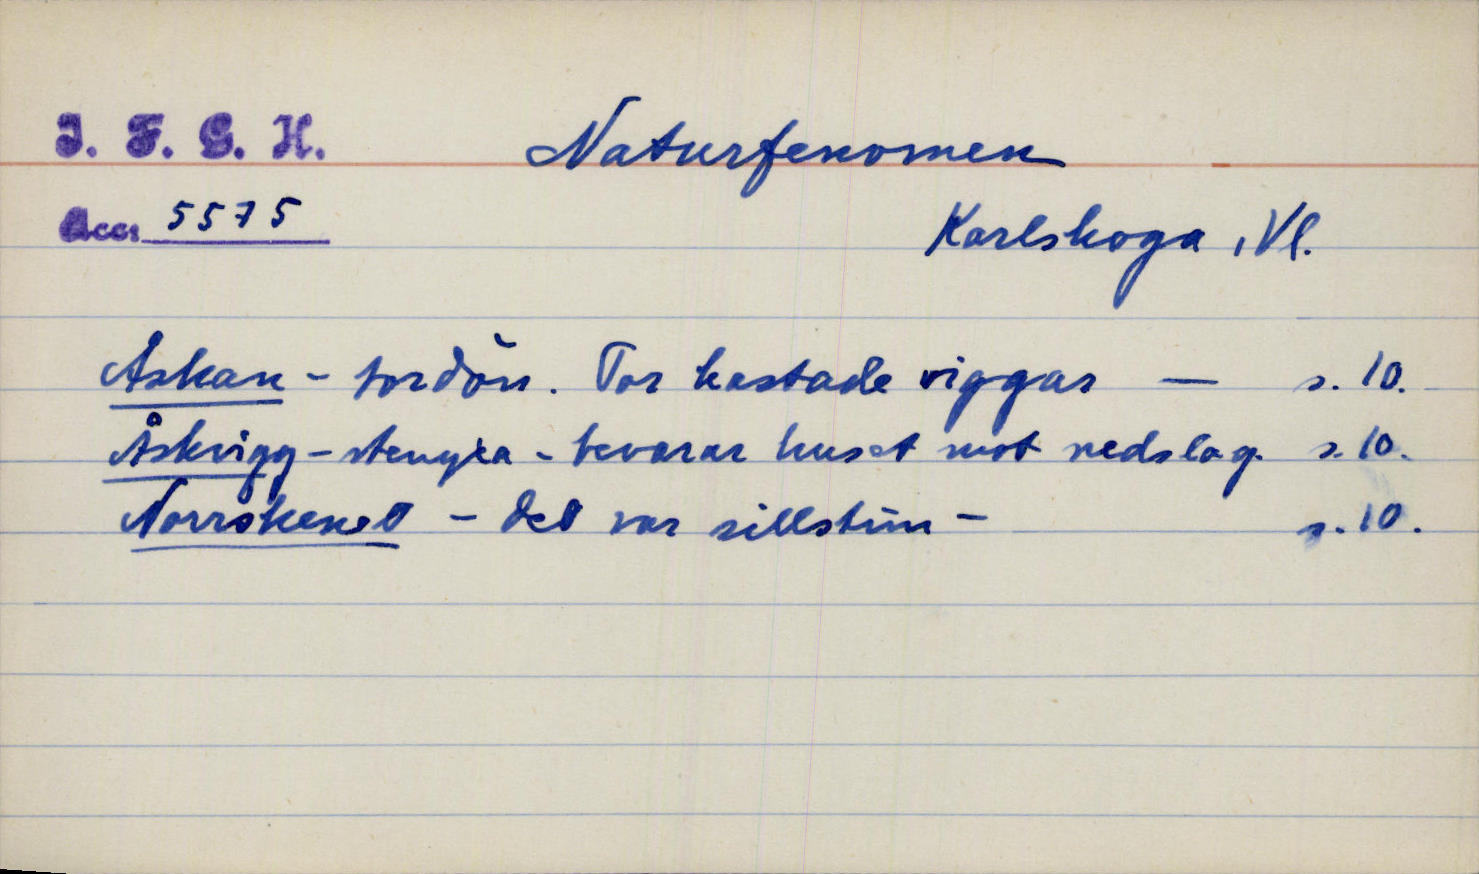 I. F. G. H. Naturfenomen
Acc. 5575
Karlskoga, Vl.
Åskan - tordön. Tor kastade viggar — s. 10.
Åskvigg - stenyxa - bevarar huset mot nedslag. s. 10.
Norrskenet - det var sillstim - s. 10.